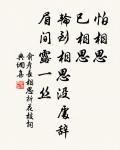 怕相思
已相思
輪到相思沒處辭
眉間露一絲
俞彥長相思折花枝詞